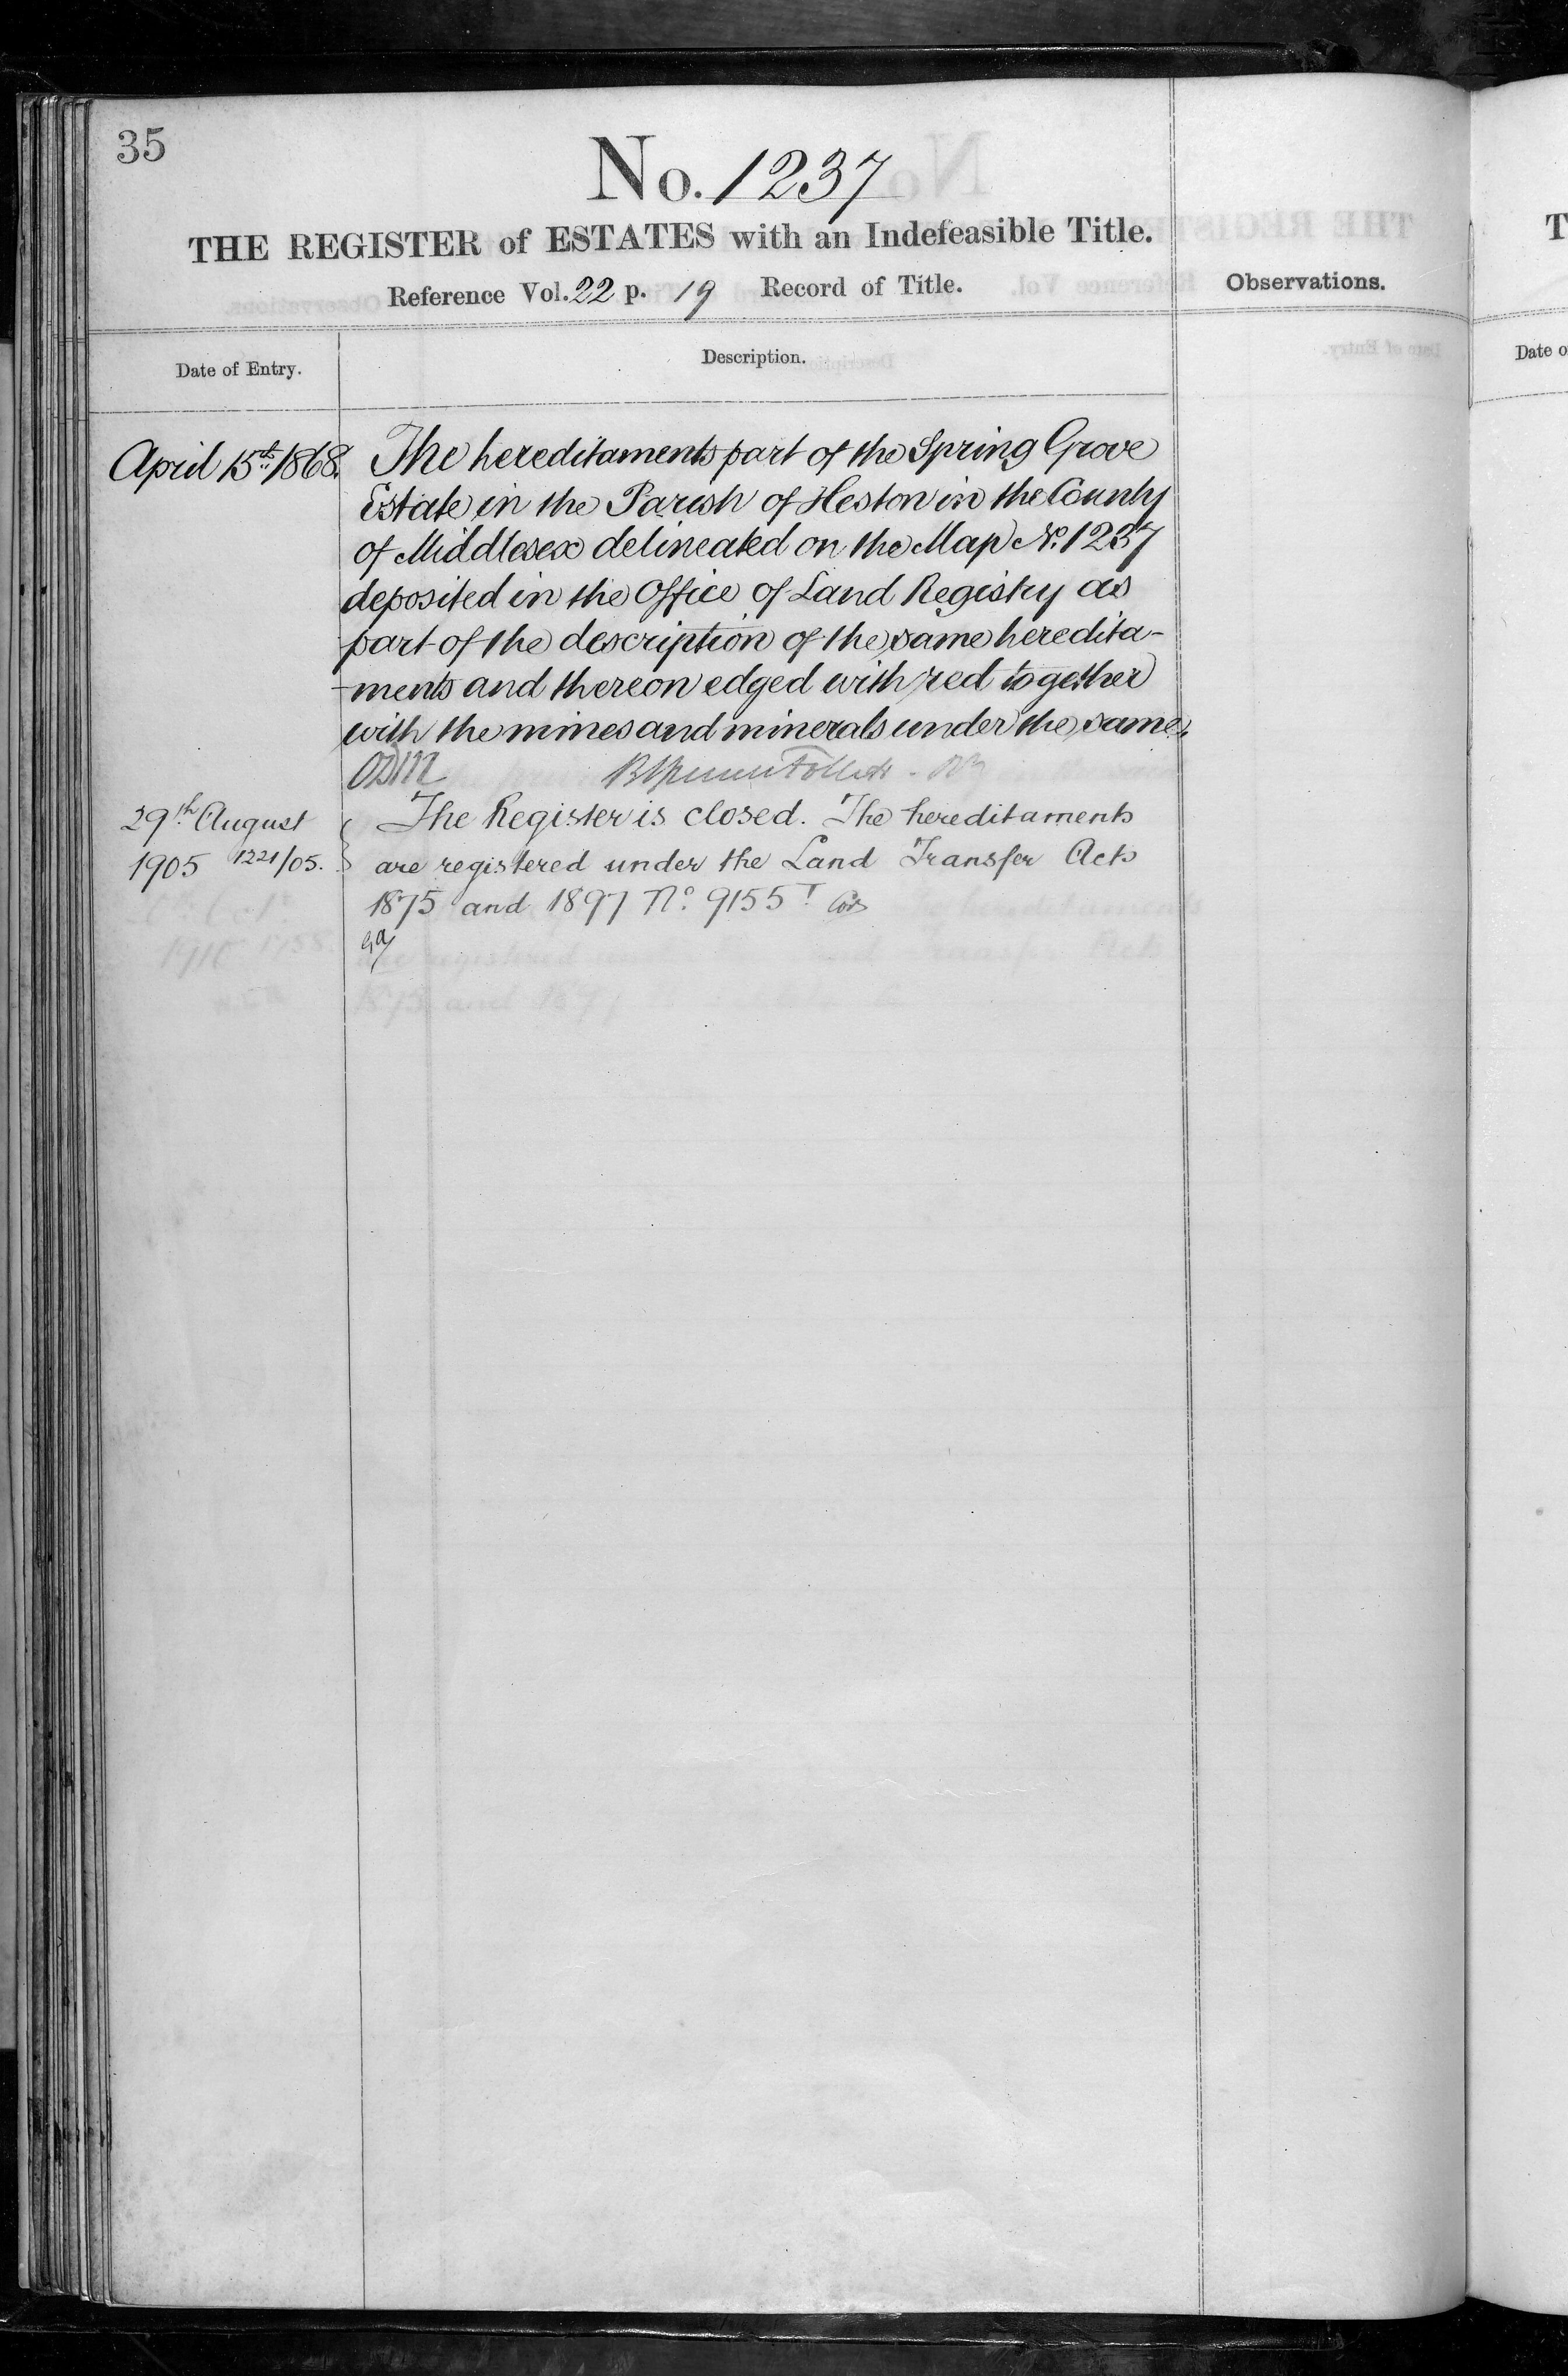 35
No. 1237
THE REGISTER of ESTATES with an Indefeasible Title.
Reference Vol. 22 p. 19 Record of Title.
Observations.
Date of Entry.
Description.
April 15th 1868.
The hereditaments part of the Spring Grove
Estate in the Parish of Heston in the County
of Middlesex delineated on the Map No. 1237
deposited in the Office of Land Registry as
part of the description of the same heredita-
-ments and thereon edged with red together
with the mines and minerals under the same.
29th August
1905 1221/05.
The Register is closed. The hereditaments
are registered under the Land Transfer Acts
1875 and 1897 No. 9155
T
Date o